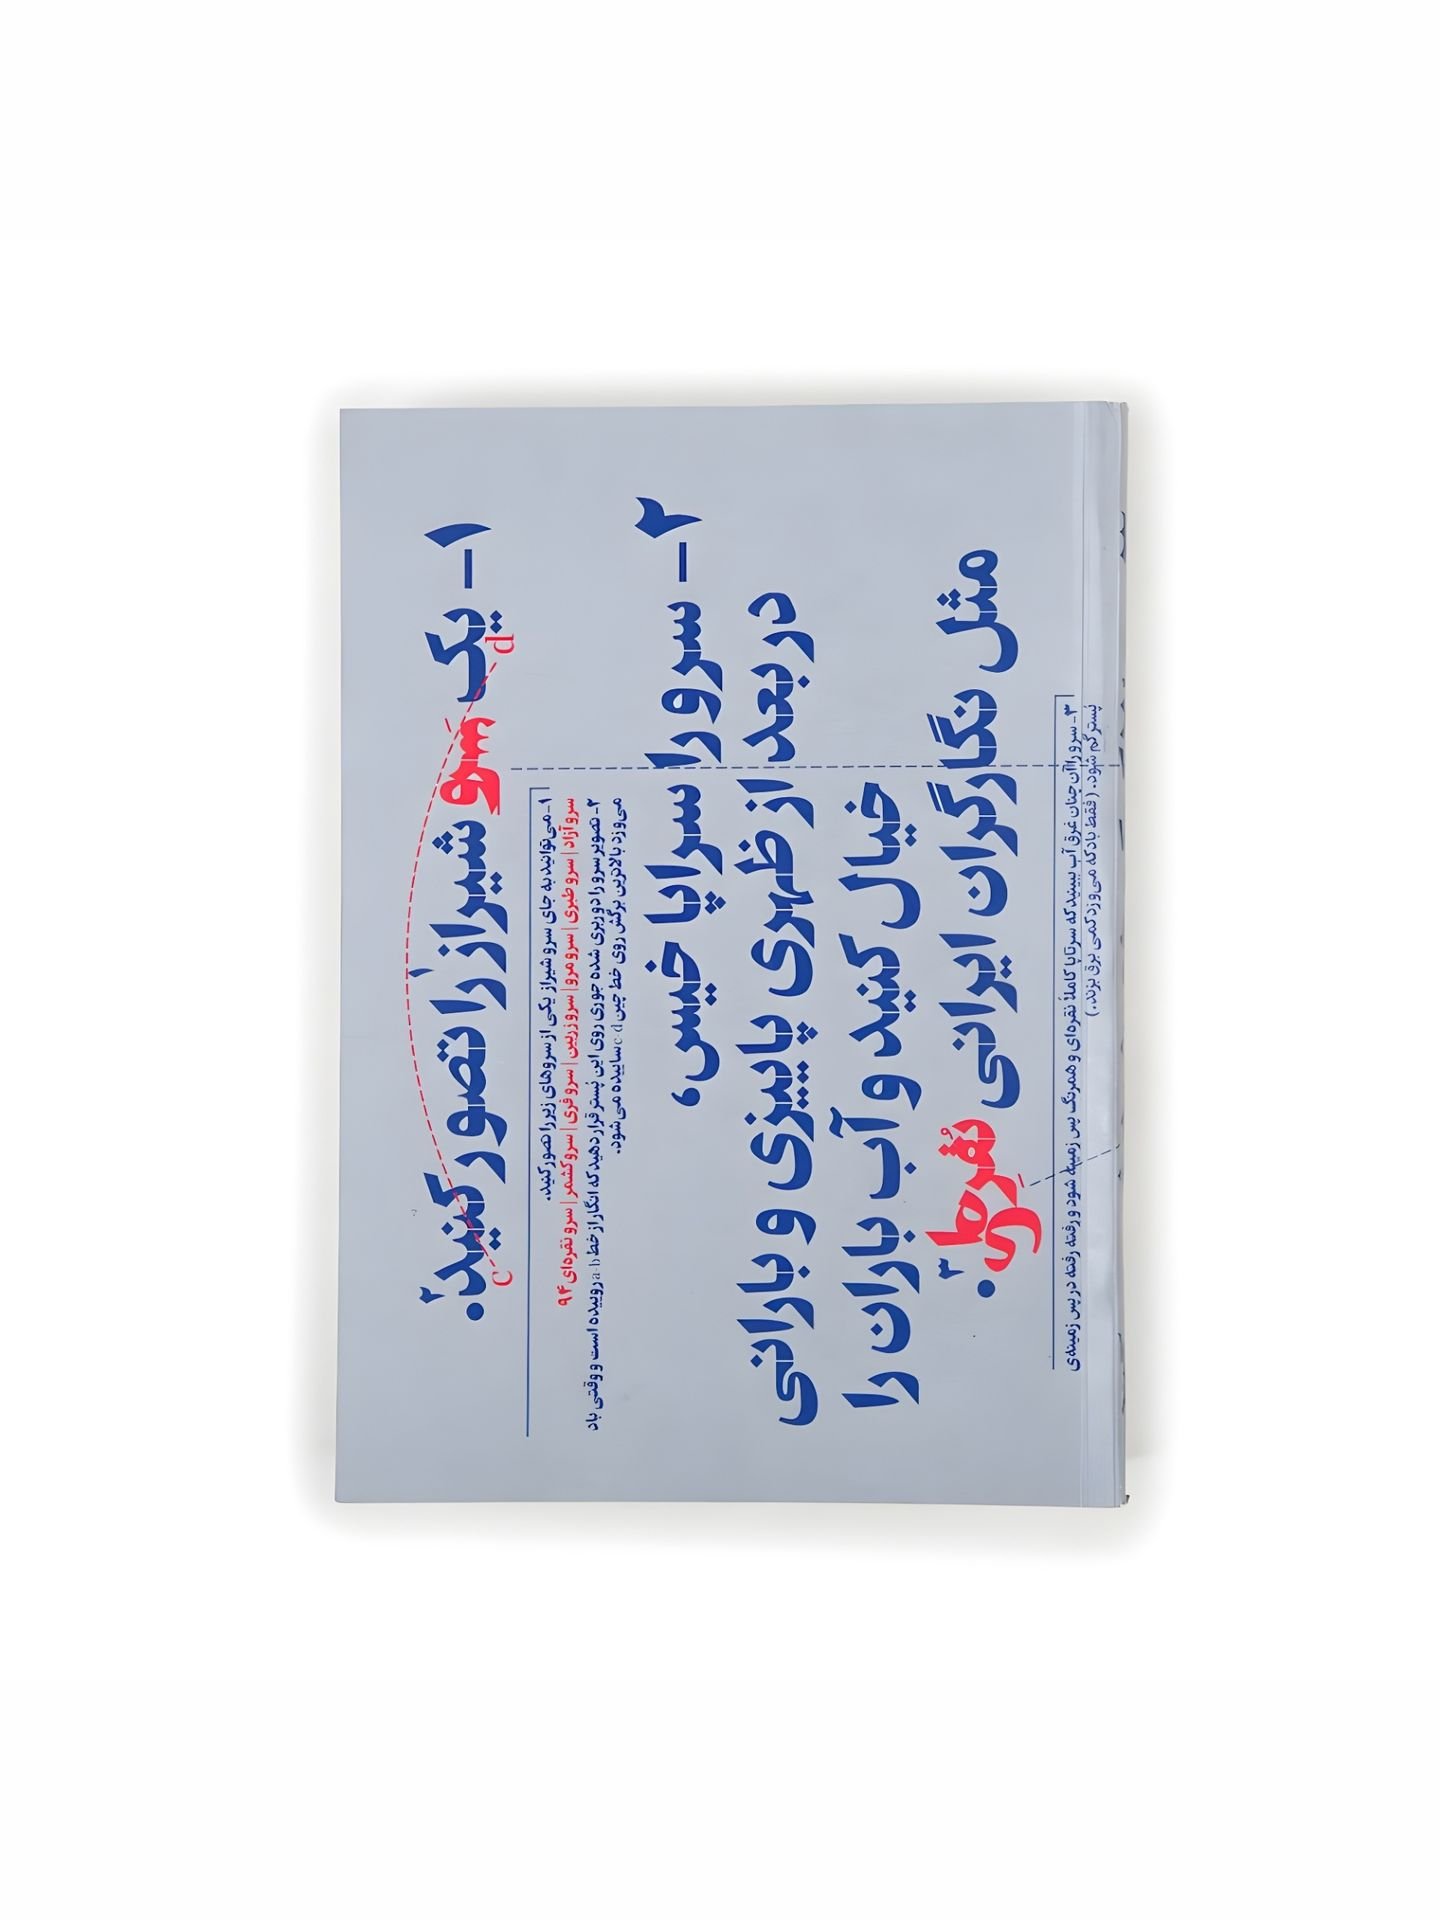 ۱- یک سرو شیراز را۱ تصور کنید.۲
d
c
۱- می‌توانید به جای سرو شیراز یکی از سروهای زیر را تصور کنید.
سرو آزاد | سرو طبری | سرو مرو | سرو زرین | سرو فری | سرو کشمر | سرو نقره‌ای ۹۴
۲- تصویر سرو را دوربری شده جوری روی این پُستر قرار دهید که انگار از خط a-b روییده است و وقتی باد
می‌وزد بالاترین برگش روی خط چین c-d ساییده می‌شود.
۲- سرو را سراپا خیس،
در بعد از ظهری پاییزی و بارانی
خیال کنید و آب باران را
مثل نگارگران ایرانی
نُقره‌ای.۳
۳- سرو را آن چنان غرق آب ببینید که سر تا پا کاملاً نقره‌ای و همرنگ پس زمینه شود و رفته رفته در پس زمینه‌ی
پُستر گم شود. (فقط باد که می‌وزد کمی برق بزند.)